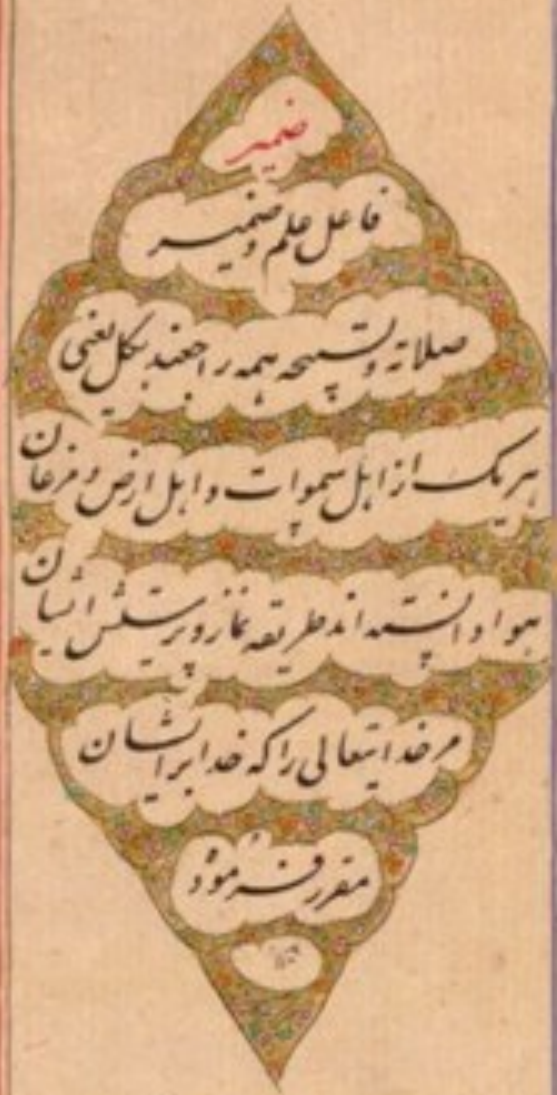 ضمیر
فاعل علم و ضمیر
صلاته و تسبیحه همه راجعند بکل یعنی
هر یک از اهل سموات و اهل ارض و مرغان
هوا دانسته اند طریقه نماز و پرستش ایشان
مر خدایتعالی را که خدا بر ایشان
مقرر فرموده